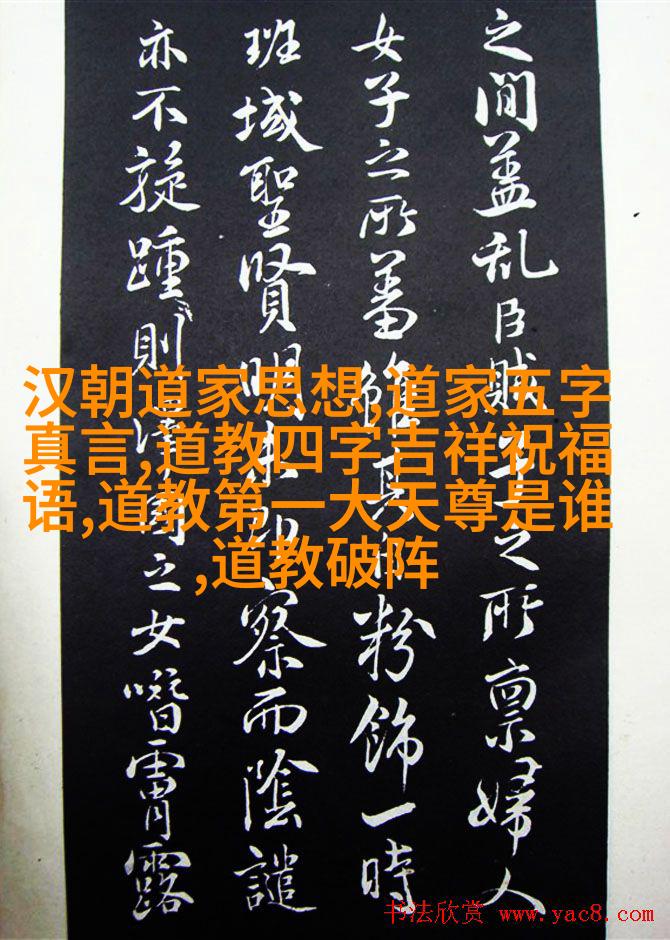 之間蓋乱臣賊之所禀婦人
女子之所蓄粉飾一時
班域聖賢明察而陰譴
亦不旋踵則之女霄露
汉朝道家思想,道家五字
真言,道教四字吉祥祝福
语,道教第一大天尊是谁
,道教破阵
书法欣赏 www.yac8.com